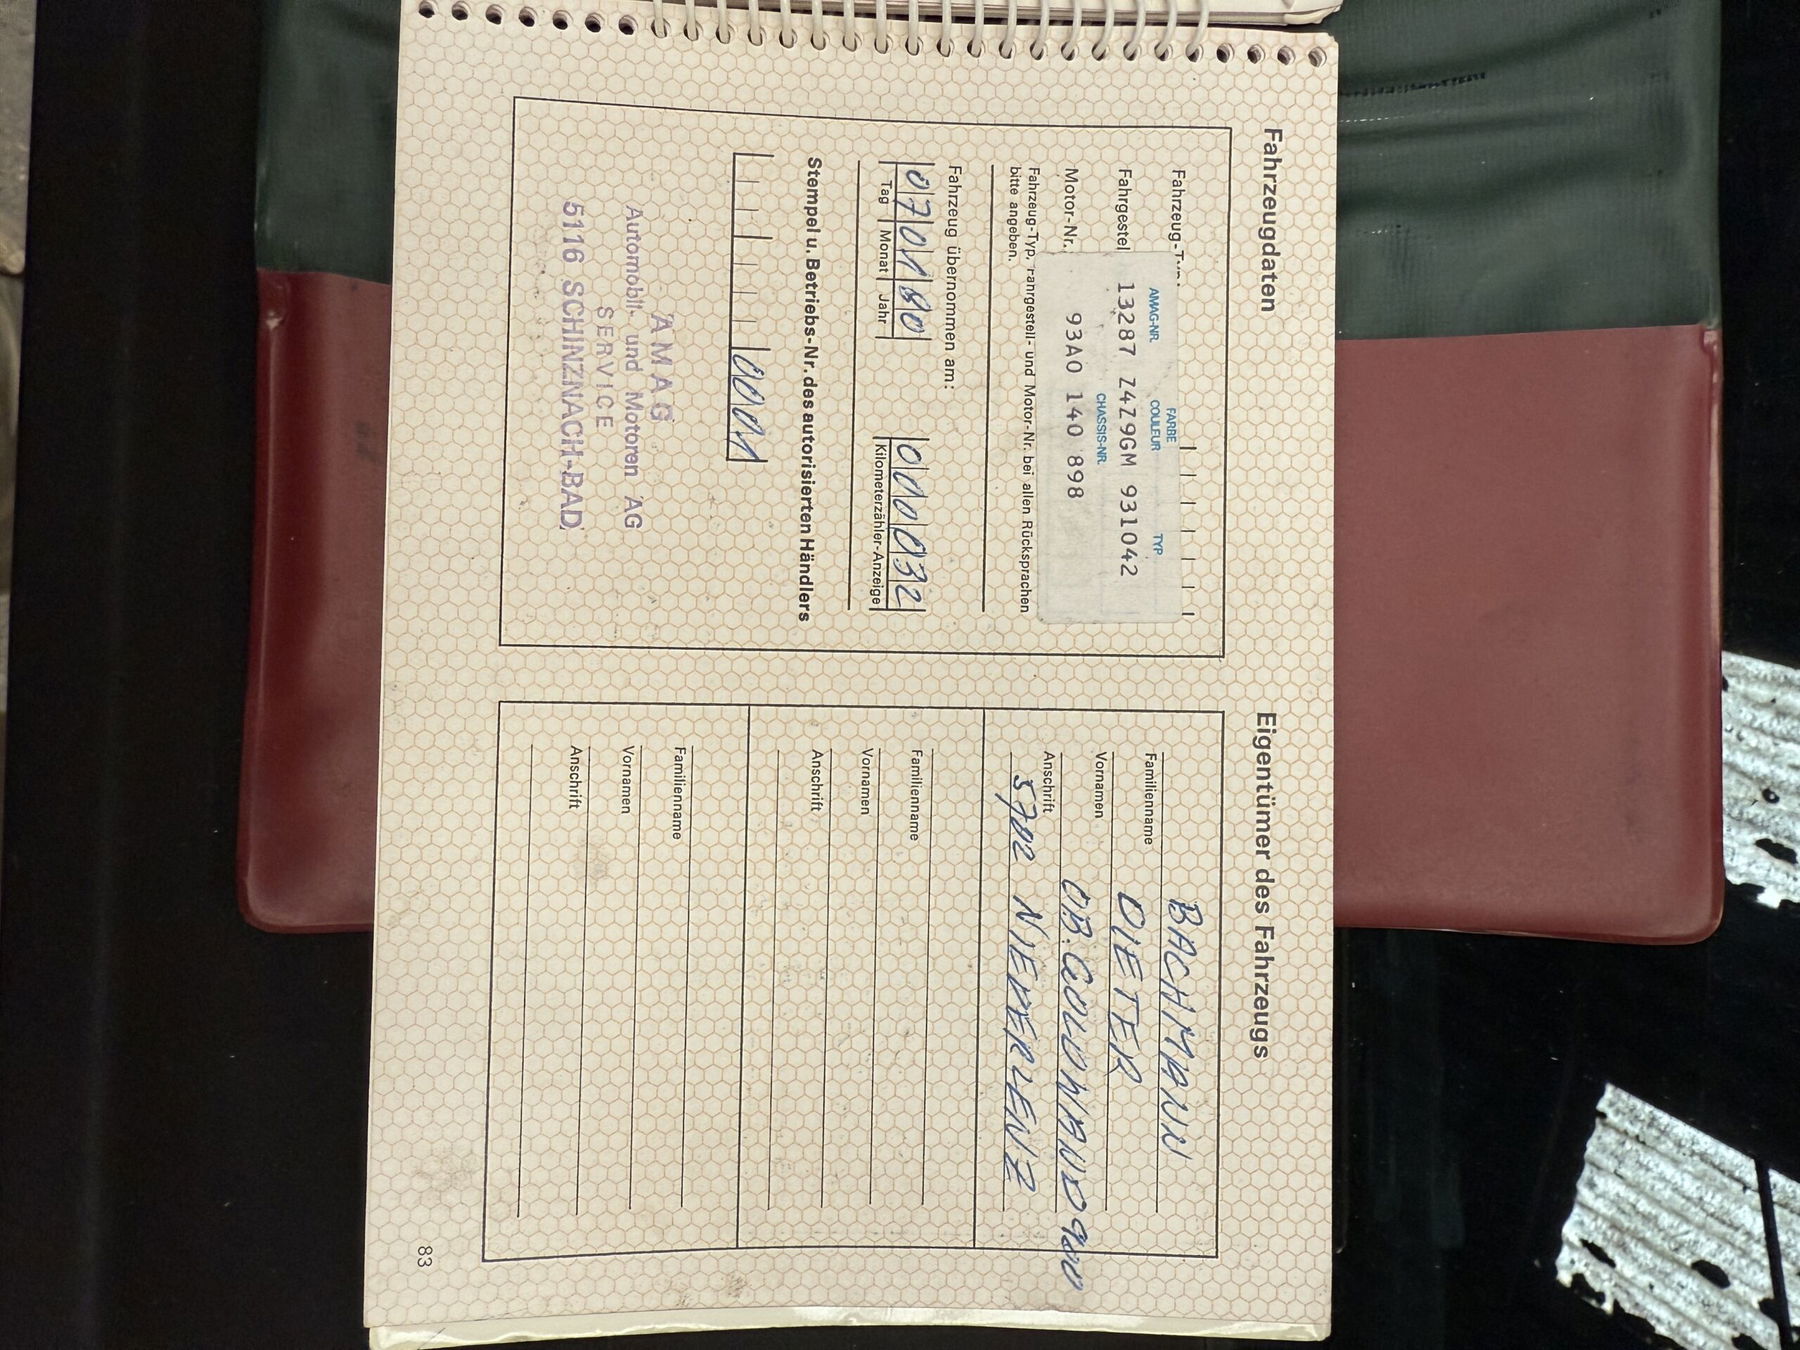 Fahrzeugdaten
Fahrzeug-Typ
AMAG-NR.
FARBE
COULEUR
TYP
Fahrgestel
13287 Z4Z9GM 931042
CHASSIS-NR.
Motor-Nr.
93A0 140 898
Fahrzeug-Typ, Fahrgestell- und Motor-Nr. bei allen Rücksprachen
bitte angeben.
Fahrzeug übernommen am:
070180
000032
Tag Monat Jahr
Kilometerzähler-Anzeige
Stempel u. Betriebs-Nr. des autorisierten Händlers
0001
AMAG
Automobil- und Motoren AG
SERVICE
5116 SCHINZNACH-BAD
Eigentümer des Fahrzeugs
BACHMANN
Familienname
DIETER
Vornamen
OB. GOLDWAND 900
Anschrift
5702 NIEDERLENZ
Familienname
Vornamen
Anschrift
Familienname
Vornamen
Anschrift
83